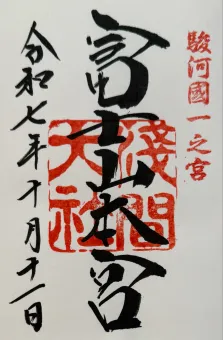 駿河國一之宮
富士山本宮
淺間大社
令和七年十月十一日